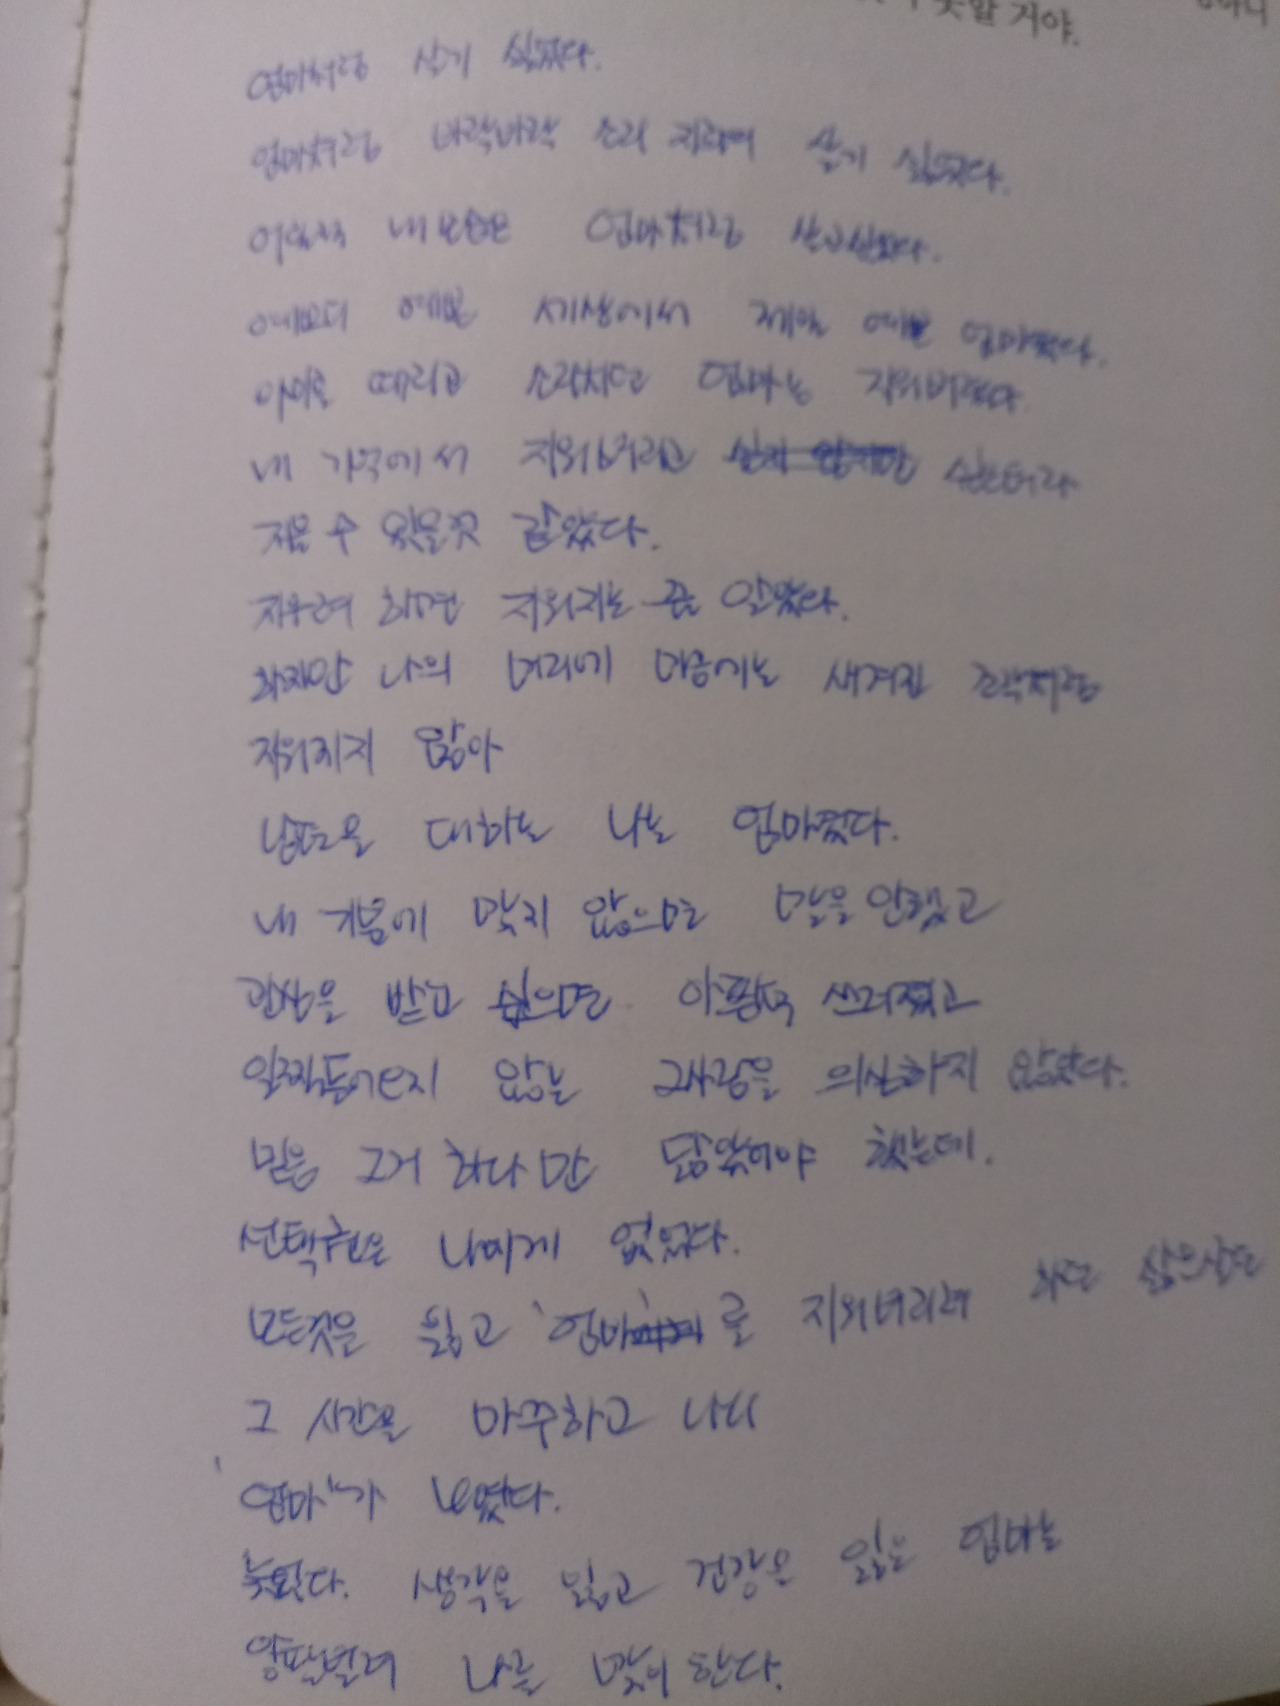 못할 거야.
엄마처럼 살기 싫었다.
엄마처럼 바락바락 소리 지르며 살기 싫었다.
어릴적 내 모습은 엄마처럼 살고싶었다.
예쁜 세상에서 제일 예쁜 엄마였다.
때리고 소리치던 엄마는 지워버렸다
내 기억에서 지워버리고
지울 수 있을것 같았다.
지우려 하면 지워지는 줄 알았다.
하지만 나의 머리에 마음에는 새겨진 조각처럼
지워지지 않아
남편을 대하는 나는 엄마였다.
내 기분에 맞지 않으면 말을 안했고
관심을 받고 싶으면 쓰러졌고
않는 그사람을 의심하지 않았다.
믿음 그거 하나만 닮았어야 했는데.
선택권은 나에게 없었다.
모든것을 잃고 '엄마'로 지워버리려 하던
그 시간을 마주하고 나니
"엄마"가 보였다.
늦었다. 생각을 잃고 건강을 잃은 엄마는
양팔벌려 나를 맞이한다.